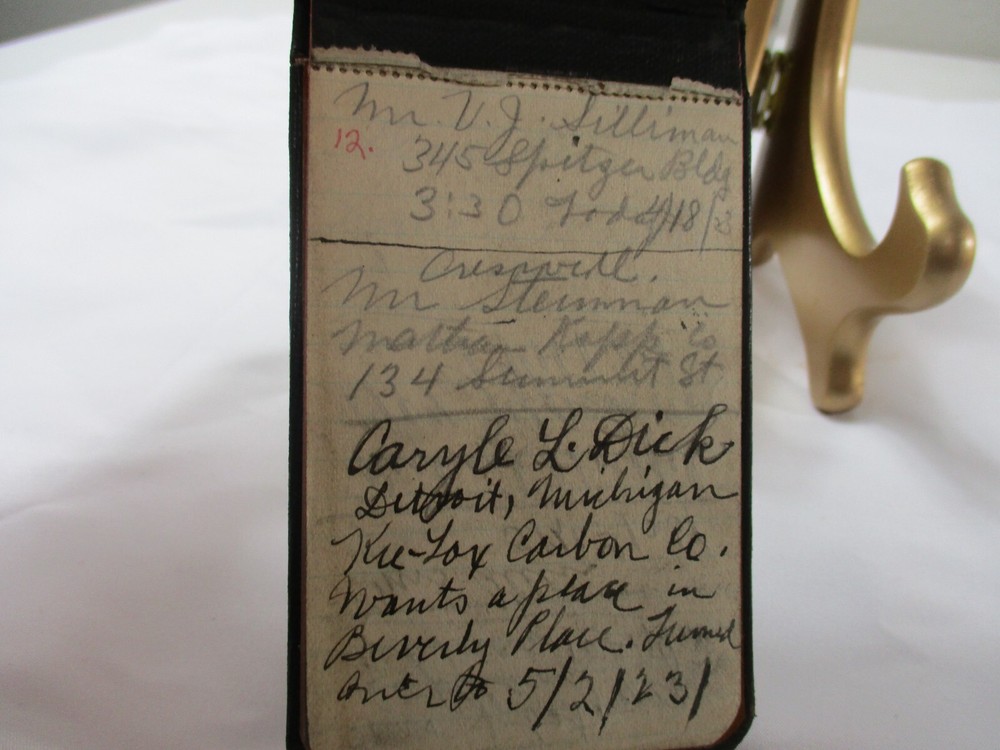 Mr. V. J. Silliman
12.
345 Spitzer Bldg
3:30 Today 4/18/23
Mr Steinman
Kopp Co
134 Summit St
Caryle L. Dick
Detroit, Michigan
Kee-Lox Carbon Co.
Wants a place in
Beverly Place. Turned
over to 5/2/23/